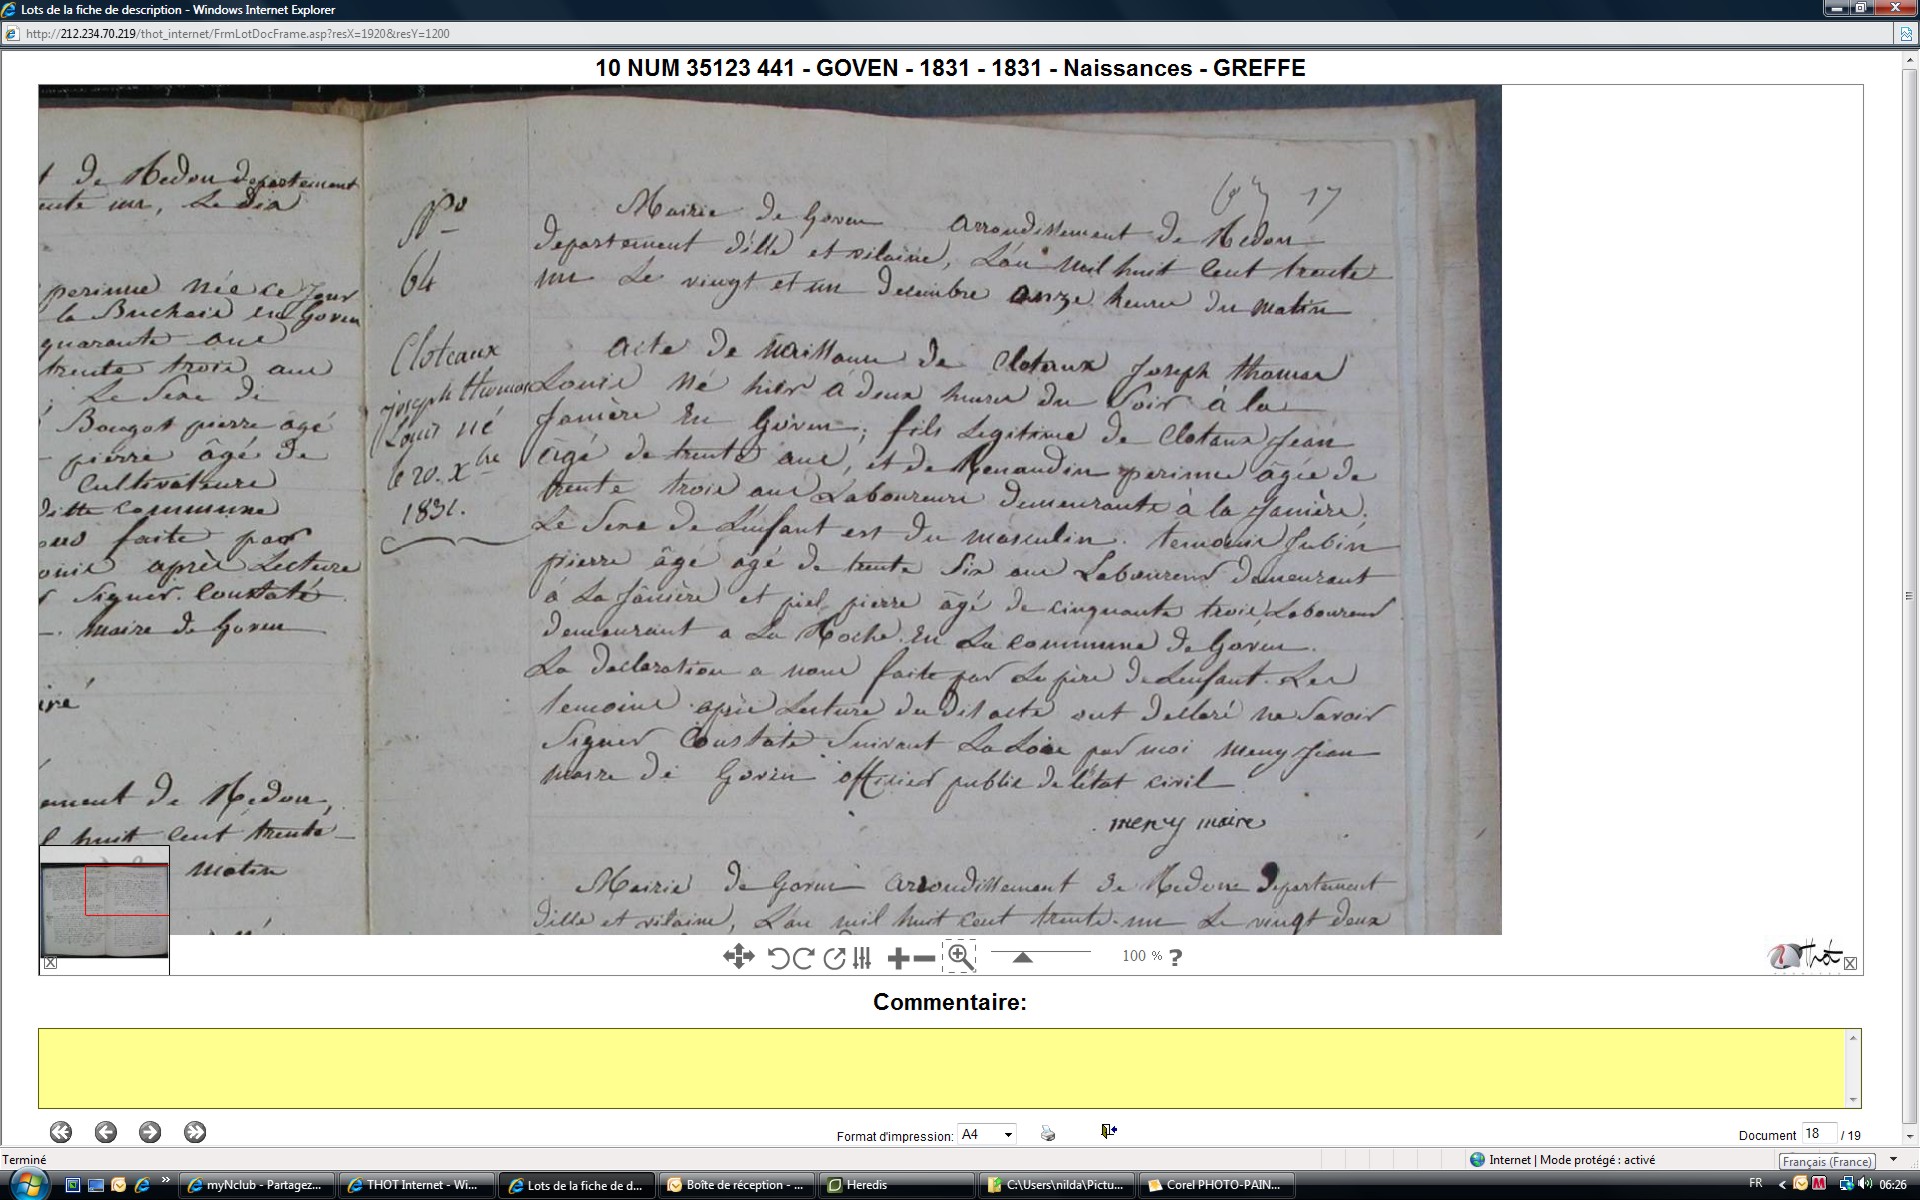 Lots de la fiche de description - Windows Internet Explorer
http://212.234.70.219/thot_internet/FrmLotDocFrame.asp?resX=1920&resY=1200
10 NUM 35123 441 - GOVEN - 1831 - 1831 - Naissances - GREFFE
t de Redon departement
ente un, Le dix
perinne Née ce jour
la Buchaie en Goven
quarante ans
trente trois ans
Le Sexe de
Bougot pierre âgé
pierre âgé de
Cultivateurs
ditte commune
ous faite par
après Lecture
Signer. Constaté
maire de Goven
ement de Redon,
l huit cent trente
matin
No
64
Cloteaux
joseph thomas
Louis né
le 20. Xbre
1831.
17
Mairie de Goven arrondissement de Redon
departement d'ille et vilaine, L'an mil huit cent trente
un Le vingt et un decembre onze heures du matin
acte de naissance de Clotaux Joseph thomas
Louis Né hier à deux heures du Soir à la
Janière En Goven; fils Legitime de Clotaux Jean
âgé de trente ans, et de Renaudin perinne âgée de
trente trois ans Laboureurs demeurants à la Janière.
Le Sexe de L'enfant est du masculin. temoins Jubin
pierre âgé âgé de trente Six ans Laboureur demeurant
à La Janière et piel pierre âgé de cinquante trois Laboureur
demeurant a La Roche En La commune de Goven.
La declaration a nous faite par Le père de L'enfant. Les
temoins après Lecture du dit acte ont declaré ne Savoir
Signer Constaté Suivant La Loi par moi meny Jean
maire de Goven officier public de l'état civil
meny maire
Mairie de Goven arrondissement de Redon Departement
dille et vilaine, L'an mil huit cent trente un Le vingt deux
100 % ?
Thot
Commentaire:
Format d'impression: A4
Document 18 / 19
Terminé
Internet | Mode protégé : activé
Français (France)
myNclub - Partagez...
THOT Internet - Wi...
Lots de la fiche de d...
Boîte de réception - ...
Heredis
C:\Users\nilda\Pictu...
Corel PHOTO-PAIN...
FR
06:26